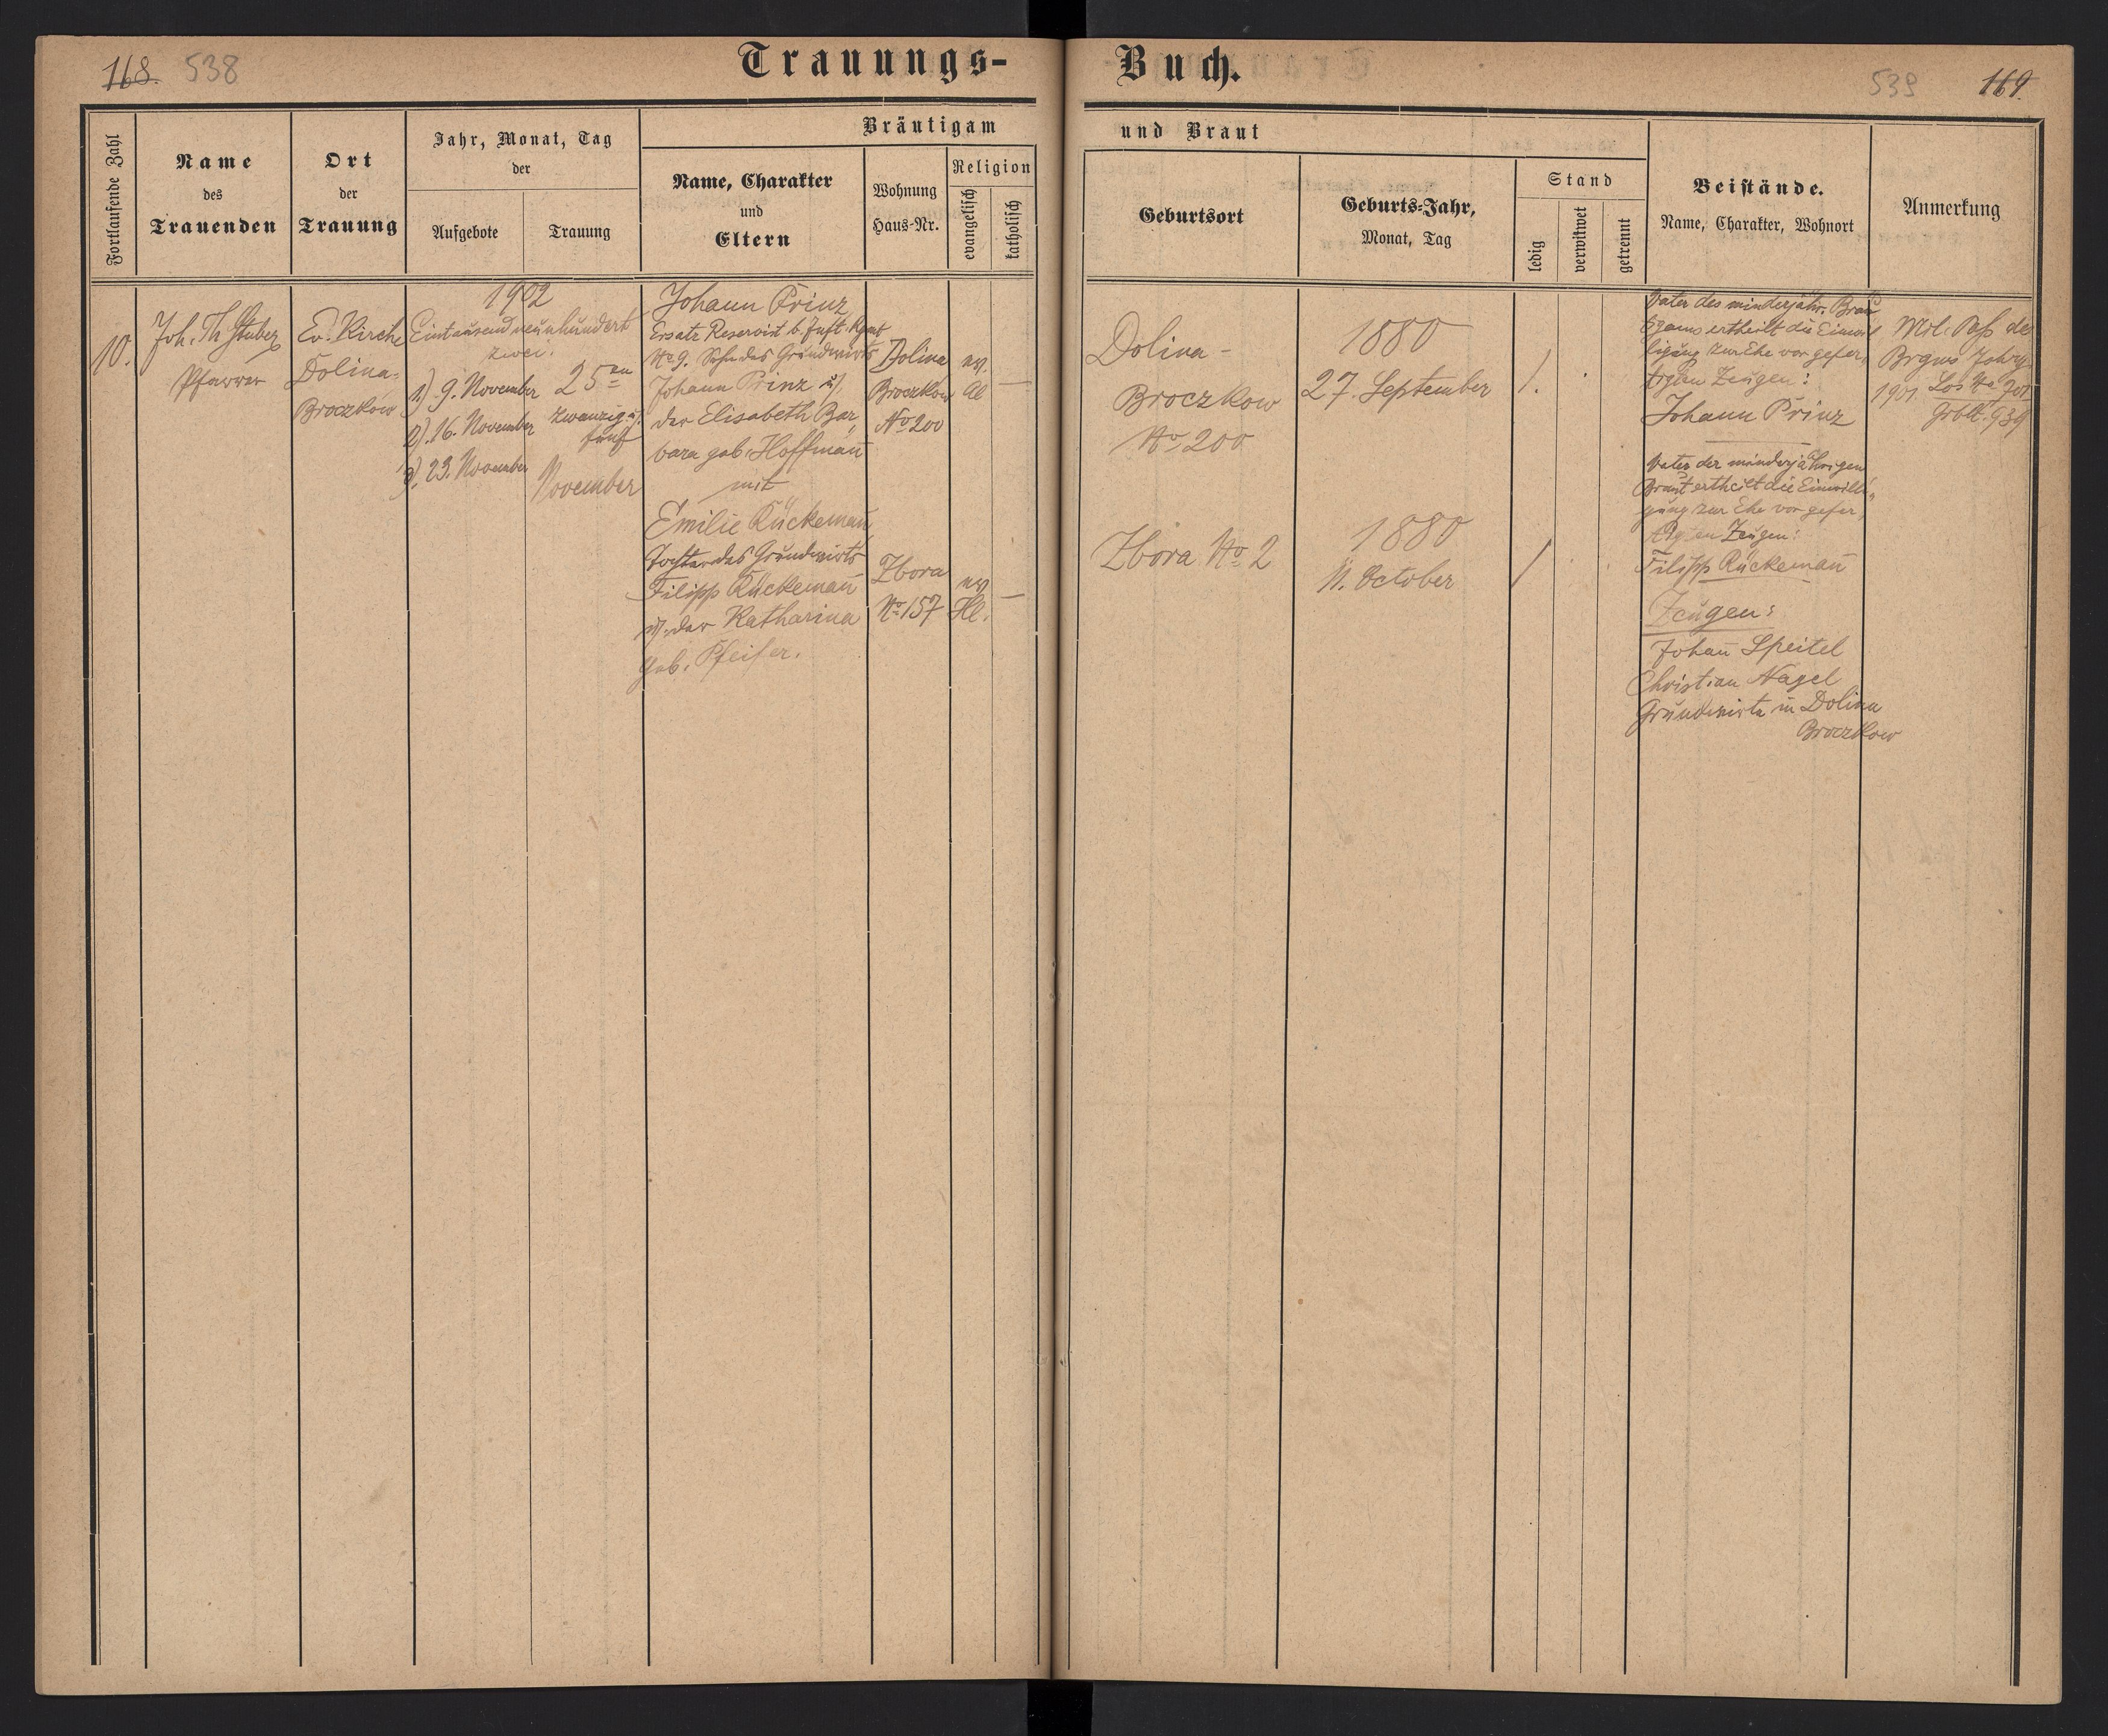 168. 538
Trauungs-
Buch.
539 169.
Fortlaufende Zahl
Name
des
Trauenden
Ort
der
Trauung
Jahr, Monat, Tag
der
Aufgebote
Trauung
Bräutigam
Name, Charakter
und
Eltern
Wohnung
Haus-Nr.
Religion
evangelisch
katholisch
und Braut
Geburtsort
Geburts-Jahr,
Monat, Tag
Stand
ledig
verwitwet
getrennt
Beistände.
Name, Charakter, Wohnort
Anmerkung
10.
Joh. Th. Stuber
Pfarrer
Ev. Kirche
Dolina-
Broczkow
1902
Eintausend neunhundert
zwei.
1) 9. November
2). 16. November
3). 23. November
25
zwanzig u.
fünf
November
Johann Prinz
Ersatz Reservist b. Inft. Rgmt
No 9. Sohn des Grundwirts
Johann Prinz u.
der Elisabeth Bar,
bara geb. Hoffmañ
mit
Emilie Rückemañ
Tochter des Grundwirts
Filipp Rückemañ
u. der Katharina
geb. Pfeifer.
Dolina
Broczkow
No 200
ev.
AC
—
Zbora
No 157
ev.
HC.
—
Dolina-
Broczkow
No 200
1880
27. September
1.
Zbora No 2
1880
11. October
1
Vater des minderjähr. Bräu
tigams ertheilt die Einwil
ligung zur Ehe vor gefer,
tigten Zeugen:
Johann Prinz
Vater der minderjährigen
Braut ertheilt die Einwilli,,
gung zur Ehe vor gefer,
tigten Zeugen:
Filipp Rückemañ
Zeugen:
Johañ Speitel
Christian Nagel
Grundwirte in Dolina
Broczkow
Mil. Paß de
1901 Los No 201
Grbbl. 939